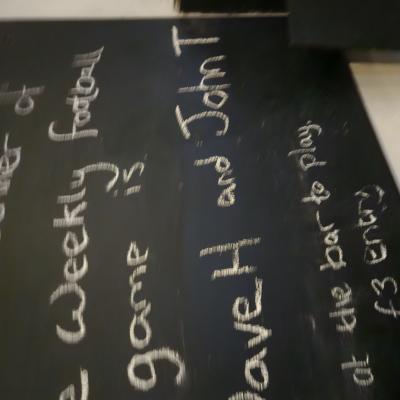 of
weekly football
game is
Dave H and John T
at the bar to play,
£3 entry